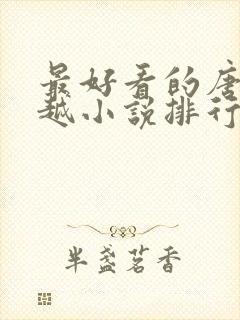 最好看的唐
越小说排行
半盏茗香